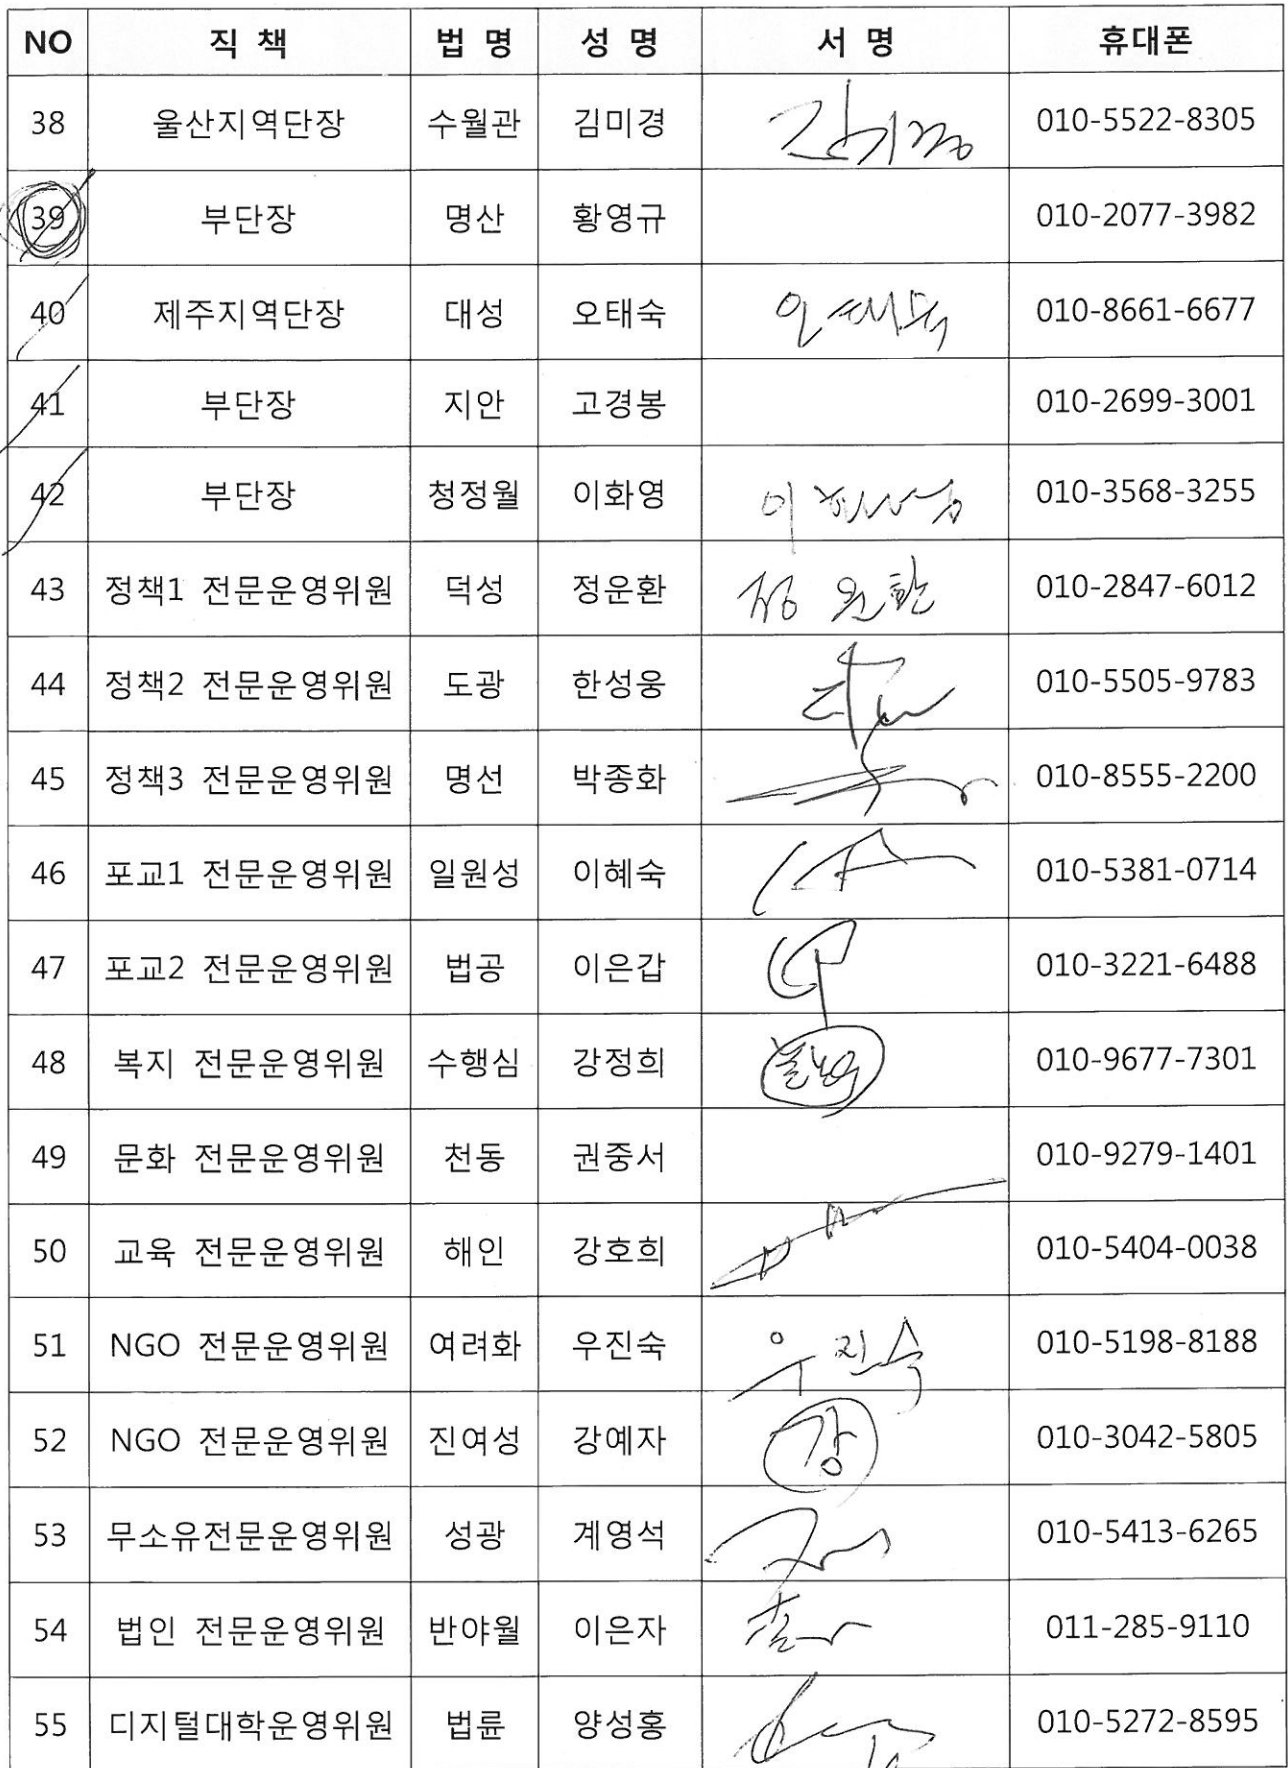 NO 직 책 법 명 성 명 서 명 휴대폰
38 울산지역단장 수월관 김미경 김미경 010-5522-8305
39 부단장 명산 황영규 010-2077-3982
40 제주지역단장 대성 오태숙 오태숙 010-8661-6677
41 부단장 지안 고경봉 010-2699-3001
42 부단장 청정월 이화영 이화영 010-3568-3255
43 정책1 전문운영위원 덕성 정운환 정운환 010-2847-6012
44 정책2 전문운영위원 도광 한성웅 010-5505-9783
45 정책3 전문운영위원 명선 박종화 010-8555-2200
46 포교1 전문운영위원 일원성 이혜숙 010-5381-0714
47 포교2 전문운영위원 법공 이은갑 010-3221-6488
48 복지 전문운영위원 수행심 강정희 010-9677-7301
49 문화 전문운영위원 천동 권중서 010-9279-1401
50 교육 전문운영위원 해인 강호희 010-5404-0038
51 NGO 전문운영위원 여려화 우진숙 우진숙 010-5198-8188
52 NGO 전문운영위원 진여성 강예자 강 010-3042-5805
53 무소유전문운영위원 성광 계영석 010-5413-6265
54 법인 전문운영위원 반야월 이은자 011-285-9110
55 디지털대학운영위원 법륜 양성홍 010-5272-8595